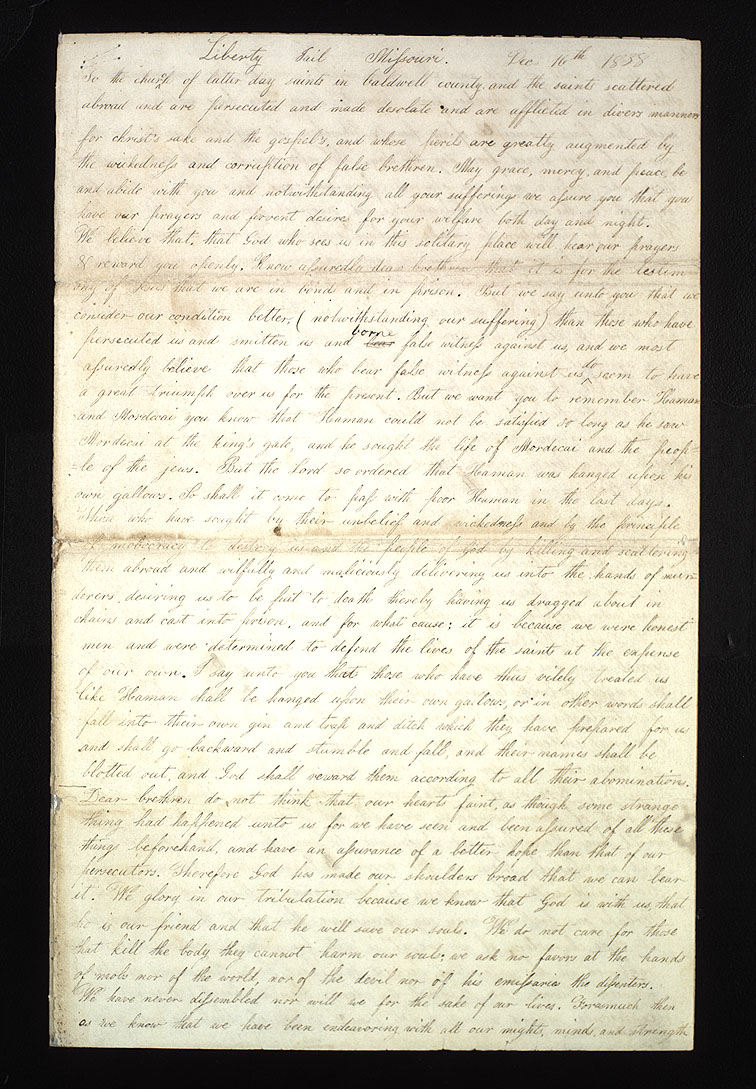 Liberty Jail Missouri. Dec 16th 1838
To the church of latter day saints in caldwell county and the saints scattered
abroad and are persecuted and made desolate and are afflicted in divers manners
for christ's sake and the gospel's, and whose perils are greatly augmented by
the wickedness and corruption of false brethren. May grace, mercy, and peace, be
and abide with you and notwithstanding all your sufferings we assure you that you
have our prayers and fervent desires for your welfare both day and night.
We believe that, that God who sees us in this solitary place will hear our prayers
& reward you openly. Know assuredly dear brethren that it is for the testim-
ony of Jesus that we are in bonds and in prison. But we say unto you that we
consider our condition better, (notwithstanding our suffering) than those who have
persecuted us and smitten us and bear borne false witness against us, and we most
assuredly believe that those who bear false witness against us do seem to have
a great triumph over us for the present. But we want you to remember Haman
and Mordecai you know that Haman could not be satisfied so long as he saw
Mordecai at the king's gate, and he sought the life of Mordecai and the peop-
=le of the jews. But the Lord so ordered that Haman was hanged upon his
own gallows. So shall it come to pass with poor Haman in the last days.
Those who have sought by their unbelief and wickedness and by the principle
of mobocracy to destroy us and the people of God by killing and scattering
them abroad and wilfully and maliciously delivering us into the hands of mur-
derers desiring us to be put to death thereby having us dragged about in
chains and cast into prison, and for what cause; it is because we were honest
men and were determined to defend the lives of the saints at the expense
of our own. I say unto you that those who have thus vilely treated us
like Haman shall be hanged upon their own gallows, or in other words shall
fall into their own gin and trap and ditch which they have prepared for us
and shall go backward and stumble and fall, and their names shall be
blotted out, and God shall reward them according to all their abominations.
Dear brethren do not think that our hearts faint, as though some strange
thing had happened unto us for we have seen and been assured of all these
things beforehand, and have an assurance of a better hope than that of our
persecutors. Therefore God has made our shoulders broad that we can bear
it. We glory in our tribulation because we know that God is with us, that
he is our friend and that he will save our souls. We do not care for those
that kill the body they cannot harm our souls; we ask no favors at the hands
of mobs nor of the world, nor of the devil nor of his emissaries the dissenters.
We have never dissembled nor will we for the sake of our lives. Forasmuch then
as we know that we have been endeavoring with all our might, minds, and strength